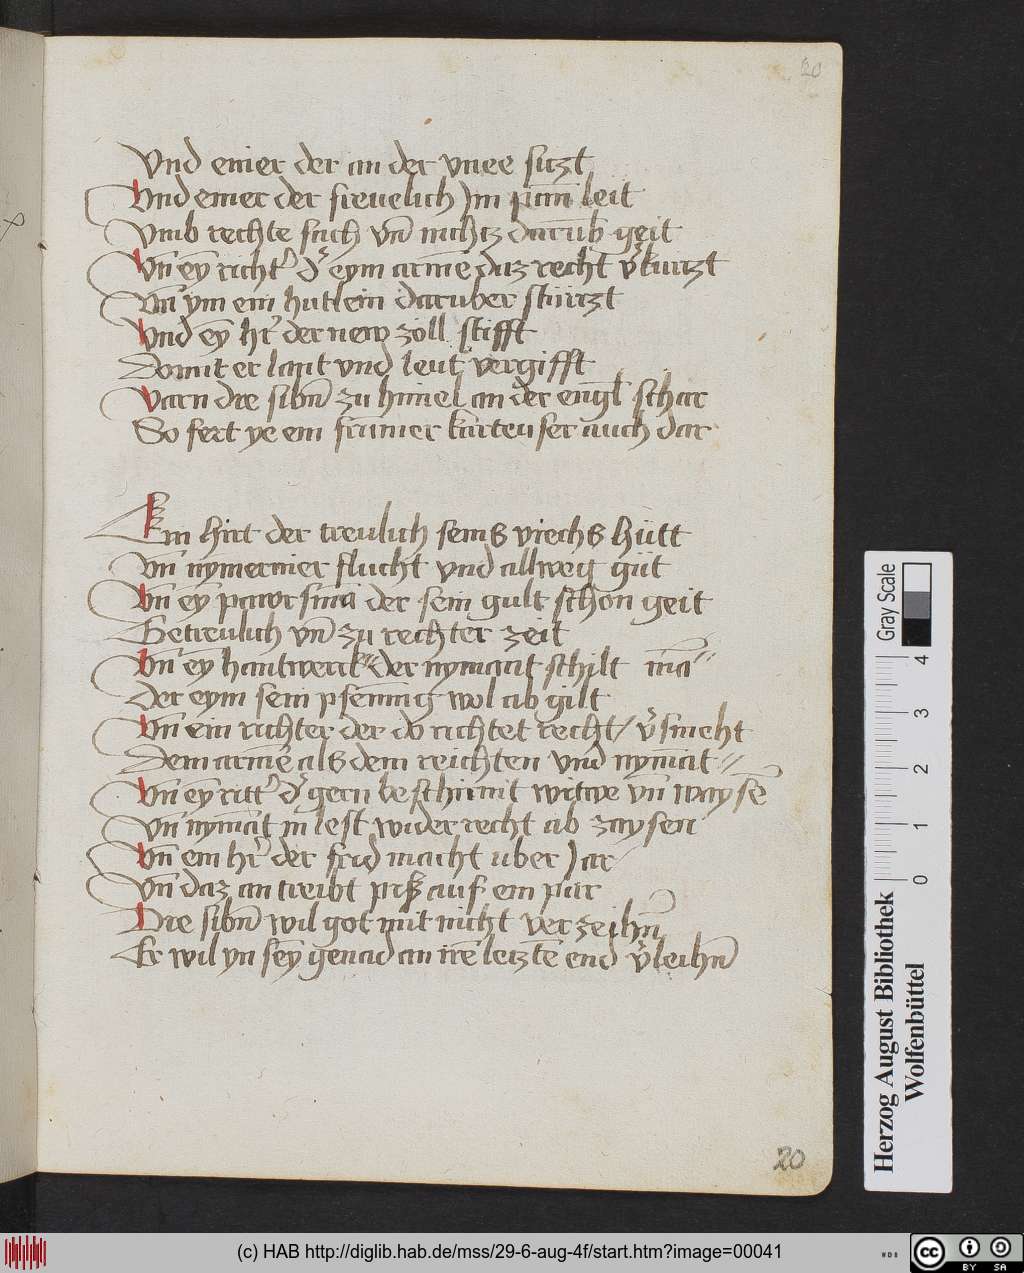 20
Vnd einer der an der vnee sitzt
Vnd einer der freuelich Jm pan̄ leit
Vmb rechte sach vn̄ nichtz darūb geit
Vn̄ eȳ richt' d' eym arme͂ daz recht v'kurtzt
Vn̄ ym ein hutlein daruber sturtzt
Vnd eȳ h'r der new zoll stifft
Domit er lant vnd leut vergifft
Varn die sibn̄ zu himel an der engl̄ schar
So fert ye ein frumer kartenser auch dar
Ein hirt der treulich seins viechs hutt
Vn̄ nymermer flucht vnd allweg gut
Vn̄ eȳ pawrsmā der sein gult schon geit
Getreulich vn̄ zu rechter zeit
Vn̄ eȳ hantwerck" der nymant schilt mā"
Der eym sein pfenning wol ab gilt
Vn̄ ein richter der do richtet recht / v'smeht
Dem arme͂ als dem reichten vnd nyma͂t "
Vn̄ eȳ ritt' d' gern beschirmt witwe vn̄ wayse͂
Vn̄ nyma͂t in lest wider recht ab zaysen
Vn̄ ein h'r der frid macht uber Jar
Vn̄ daz an treibt piß auf ein par
Die sibn̄ wil got mit nicht verzeihn̄
Er wil yn sey͂ genad an ire͂ leizte͂ end v'leihn̄
20
Herzog August Bibliothek
Wolfenbüttel
Gray Scale
0 1 2 3 4
(c) HAB http://diglib.hab.de/mss/29-6-aug-4f/start.htm?image=00041
WDB
cc BY SA